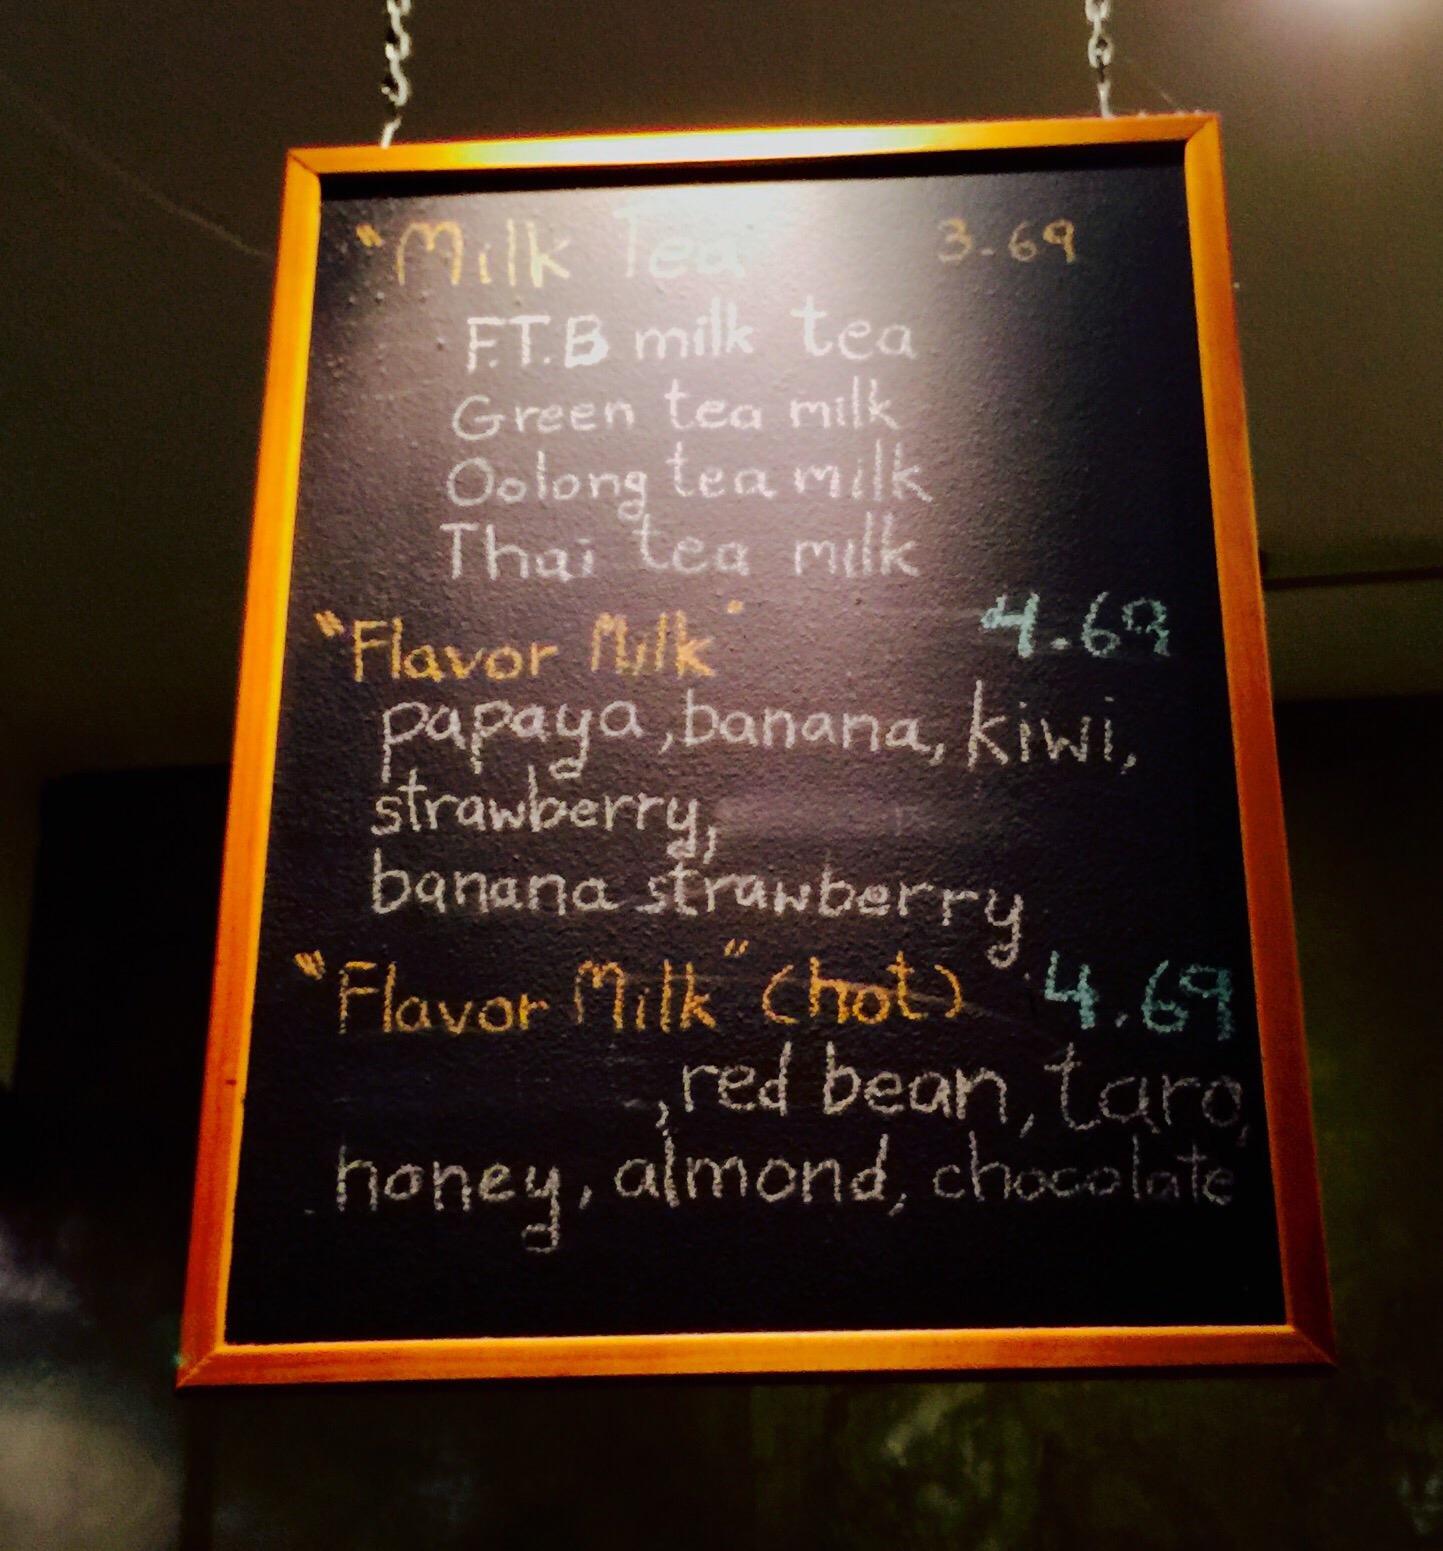 "Milk Tea 3.69
F.T.B milk tea
Green tea milk
Oolong tea milk
Thai tea milk
"Flavor Milk" 4.69
papaya, banana, kiwi,
strawberry,
banana strawberry
"Flavor Milk" (hot) 4.69
, red bean, taro,
honey, almond, chocolate